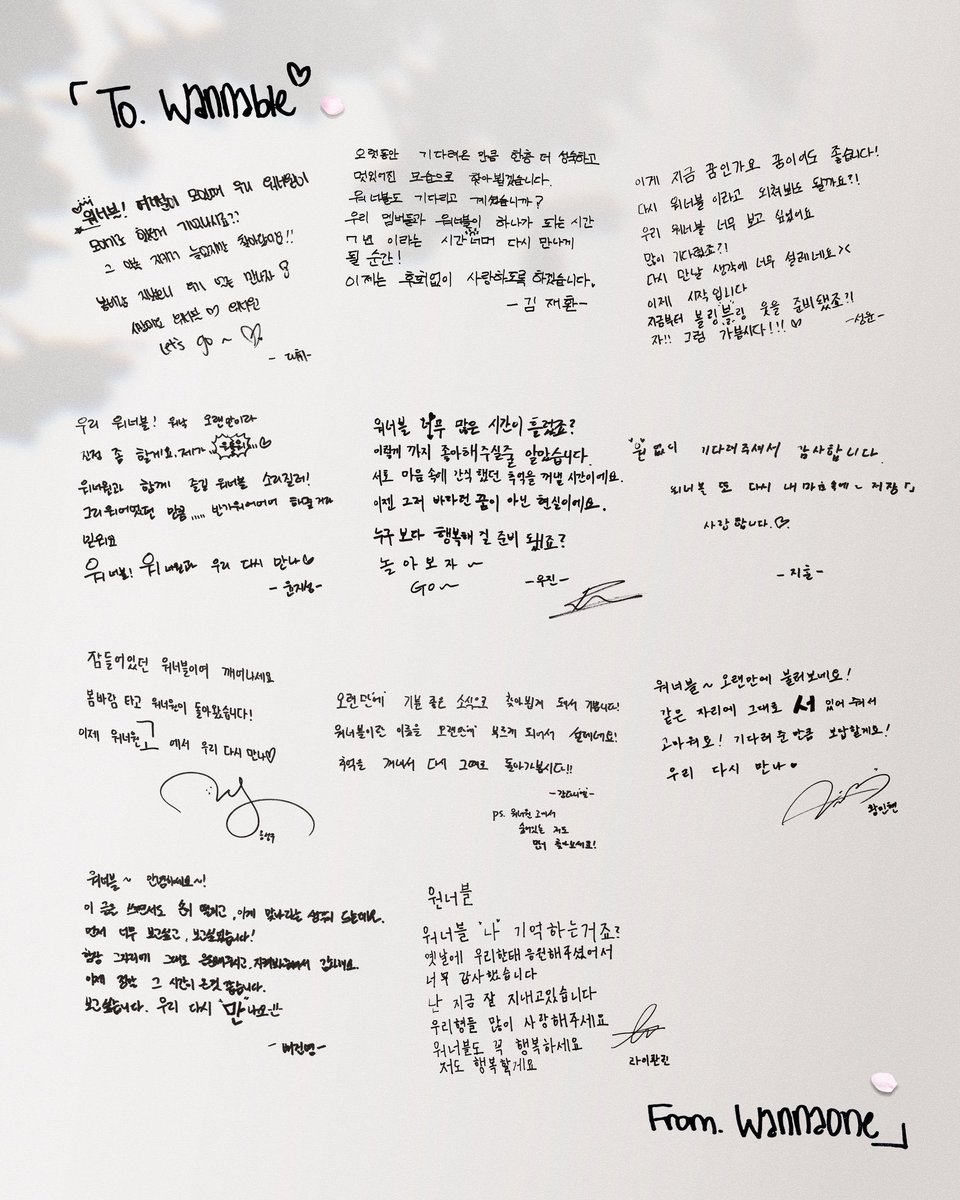 「To. Wannable♡
워너블! 여러분이 모이면 우리 워너원이
모이기도 한번 기다리셨죠??
그 약속 저희가 늦었지만 찾아왔어요!!
다시 만나자
워너블 ♡ 워너원
Let's go ~ ♡
오랫동안 기다려온 만큼 한층 더 성숙하고
멋있어진 모습으로 찾아뵙겠습니다.
워너블도 기다리고 계셨습니까?
우리 멤버들과 워너블이 하나가 되는 시간
7년 이라는 시간 너머 다시 만나게
될 순간!
이제는 후회없이 사랑하도록 하겠습니다.
-김재환-
이게 지금 꿈인가요 꿈이어도 좋습니다!
다시 워너블이라고 외쳐봐도 될까요?!
우리 워너블 너무 보고 싶었어요
많이 기다렸죠?!
다시 만날 생각에 너무 설레네요><
이제 시작입니다
지금부터 블링"블"링 웃을 준비됐죠?!
자!! 그럼 가봅시다!!!♡
-성운-
우리 워너블! 워낙 오랜만이라
진정 좀 할게요. 제가
워너원과 함께 즐길 워너블 소리질러!
그리워어했던 만큼,,,,, 반가워어어어 하실거라
믿워요
워너블! 워너원과 우리 다시 만나♡
-윤지성-
워너블 너무 많은 시간이 흘렀죠?
이렇게 까지 좋아해주실줄 알았습니다.
서로 마음 속에 간직했던 추억을 꺼낼 시간이에요.
이젠 그리 바라던 꿈이 아닌 현실이에요.
누구보다 행복해질 준비 됐죠?
놀아보자~
GO~
-우진-
"원"없이 기다려주셔서 감사합니다.
워너블 또 다시 내 마음속에~ 저장「」
사랑합니다.♡
-지훈-
잠들어있던 워너블이여 깨어나세요
봄바람 타고 워너원이 돌아왔습니다!
이제 워너원고 에서 우리 다시 만나♡
옹성우
오랜만에 기분 좋은 소식으로 찾아뵙게 돼서 기쁩니다!
워너블이란 이름을 오랜만에 부르게 되어서 설레네요!
추억을 꺼내서 다시 그때로 돌아가봅시다!!
-강다니엘-
ps. 워너원 고에서
숨어있는 저도
먼저 찾아보세요!
워너블~ 오랜만에 불러보네요!
같은 자리에 그대로 서 있어 줘서
고마워요! 기다려 준 만큼 보답할게요!
우리 다시 만나♡
황민현
워너블~ 안녕하세요~!
이 글을 쓰면서도 손이 떨리고, 이게 맞나라는 생각이 드는데요.
먼저 너무 보고싶고, 보고싶었습니다!
항상 그자리에 그대로 응원해주시고, 지켜봐주셔서 감사해요.
이제 정말 그 시간이 온것 같습니다.
보고싶습니다. 우리 다시 "만"나요-!!
-배진영-
워너블
워너블 "나" 기억하는거죠?
옛날에 우리한태 응원해주셨어서
너무 감사했습니다
난 지금 잘 지내고있습니다
우리형들 많이 사랑해주세요
워너블도 꼭 행복하세요
저도 행복할게요
라이관린
From. Wannaone」